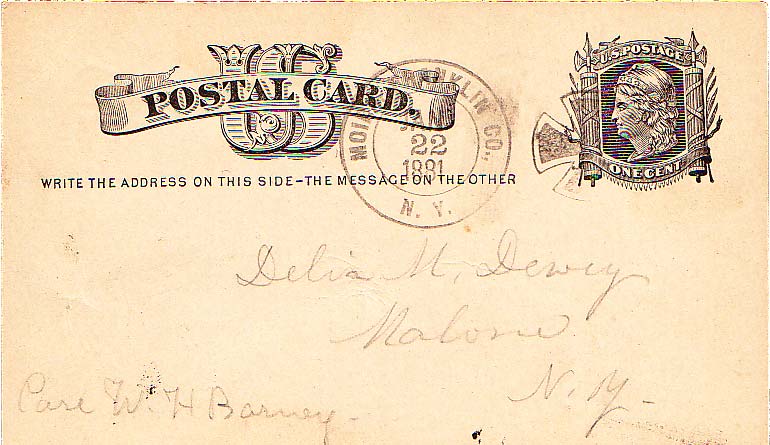 U.S. POSTAGE
US
POSTAL CARD.
ONE CENT
WRITE THE ADDRESS ON THIS SIDE-THE MESSAGE ON THE OTHER
FRANKLIN CO.,
22
1881
N. Y.
Delia M. Dewey
Malone
N. Y.
Care W. H Barney.